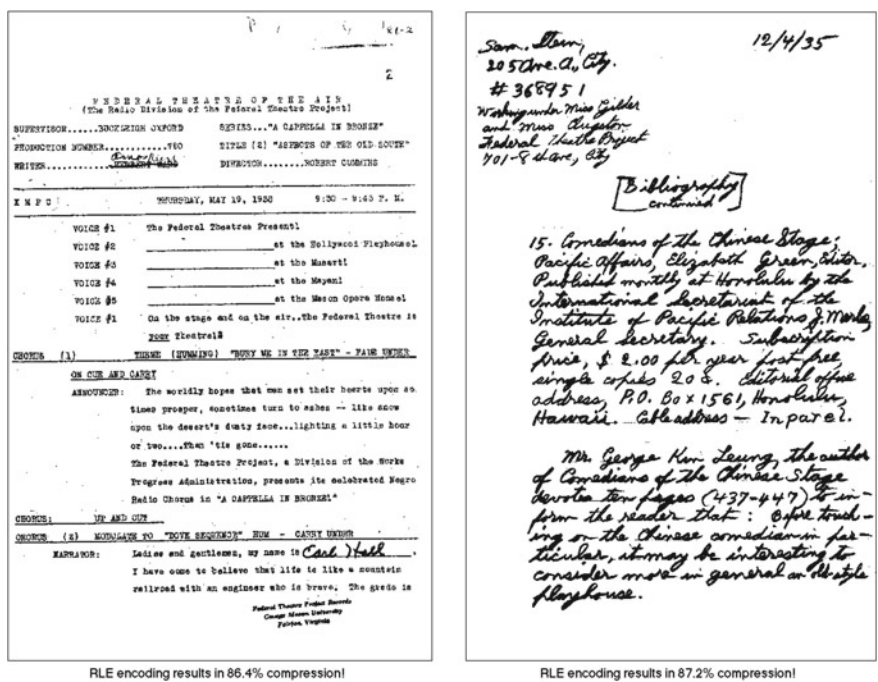 2
FEDERAL THEATRE OF THE AIR
(The Radio Division of the Federal Theatre Project)
SUPERVISOR......BUCKLEIGH OXFORD SERIES..."A CAPPELLA IN BRONZE"
PRODUCTION NUMBER............ TITLE (2) "ASPECTS OF THE OLD SOUTH"
WRITER DIRECTOR........ROBERT
K M P C THURSDAY, MAY 19, 1938 9:30 - 9:45 P. M.
VOICE #1 The Federal Theatres Present!
VOICE #2 at the Hollywood Playhouse!
VOICE #3 at the Musart!
VOICE #4 at the Mayan!
VOICE #5 at the Mason Opera House!
VOICE #1 On the stage and on the air..The Federal Theatre is
your Theatre!
CHORUS (1) THEME (HUMMING) "BURY ME IN THE EAST" - FADE UNDER
ON CUE AND CARRY
ANNOUNCER: The worldly hopes that men set their hearts upon so
times prosper, sometimes turn to ashes -- like snow
upon the desert's dusty face...lighting a little hour
or two....Then 'tis gone......
The Federal Theatre Project, a Division of the Works
Progress Administration, presents its celebrated Negro
Radio Chorus in "A CAPPELLA IN BRONZE!"
CHORUS: UP AND OUT
CHORUS (2) MODULATE TO "DOVE SEQUENCE" HUM - CARRY UNDER
NARRATOR: Ladies and gentlemen, my name is Carl Hall.
I have come to believe that life is like a mountain
railroad with an engineer who is brave. The grade is
Federal Theatre Project Records
George Mason University
Fairfax, Virginia
RLE encoding results in 86.4% compression!
12/4/35
Sam. Stern,
205 Ave. A., City.
# 368951
Working under Miss Gilder
and Miss
Federal Theatre Project
701-8th Ave, City
[Bibliography
continued]
15. Comedians of the Chinese Stage;
Pacific Affairs, Elizabeth Green, Editor.
Published monthly at Honolulu by the
International Secretariat of the
Institute of Pacific Relations,
General Secretary. Subscription
Price, $ 2.00 per year post free,
single copies 20¢. Editorial office
address, P.O. Box 1561, Honolulu,
Hawaii. Cable address — Inparel.
Mr. George Kin Leung, the author
of Comedians of the Chinese Stage
devotes ten pages (437-447) to in-
form the reader that: Before touch-
ing on the Chinese comedian in par-
ticular, it may be interesting to
consider more in general an old-style
playhouse.
RLE encoding results in 87.2% compression!